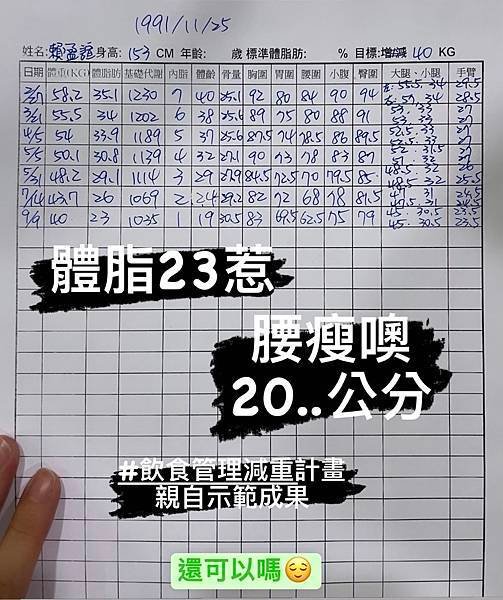 1991/11/25
姓名: 身高: 153 CM 年齡: 歲 標準體脂肪: % 目標:增減 40 KG
日期 體重(KG) 體脂肪 基礎代謝 內脂 體齡 骨量 胸圍 胃圍 腰圍 小腹 臀圍 大腿、小腿 手臂
58.2 35.1 1230 7 40 25.1 92 80 84 90 94 左: 55.5. 34 29.5
57. 34 28.5
3/1 55.5 34 1202 6 38 25.6 89 75 80 88 91 53. 33 27
53. 33 27
4/5 54 33.9 1189 5 37 25.6 87.5 74 78.5 86 89.5 52.5. 33 27
53. 33 27
5/5 50.1 30.8 1139 4 32 27.1 90 73 78 83 87 52. 31.5 27
51. 32 27
5/31 48.2 29.1 1114 3 29 27.9 84.5 72.5 70 79.5 85 48.5. 32 26
48.5. 32 25.5
7/14 43.7 26 1069 2 24 29.2 82 72 68 78 81.5 47. 31 24.5
47.5. 31 24.5
9/9 40 23 1035 1 19 30.5 83 69.5 62.5 75 79 45. 30.5 23.5
45. 30.5 23.5
體脂23惹
腰瘦噢
20..公分
#飲食管理減重計畫
親自示範成果
還可以嗎😌